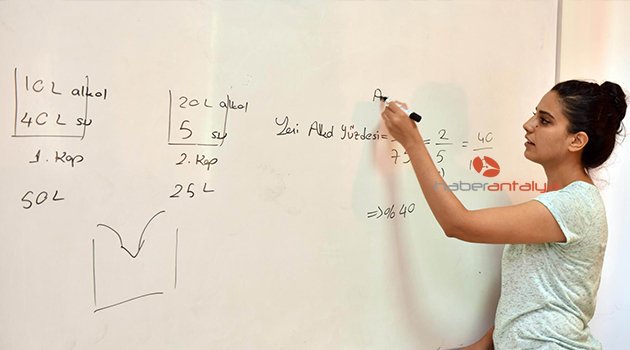 10 L alkol
40 L su
1. Kap
50 L
20 L alkol
5 su
2. Kap
25 L
A
Yeni Alkol Yüzdesi = = 2/5 = 40
⇒ %40
haberantalya